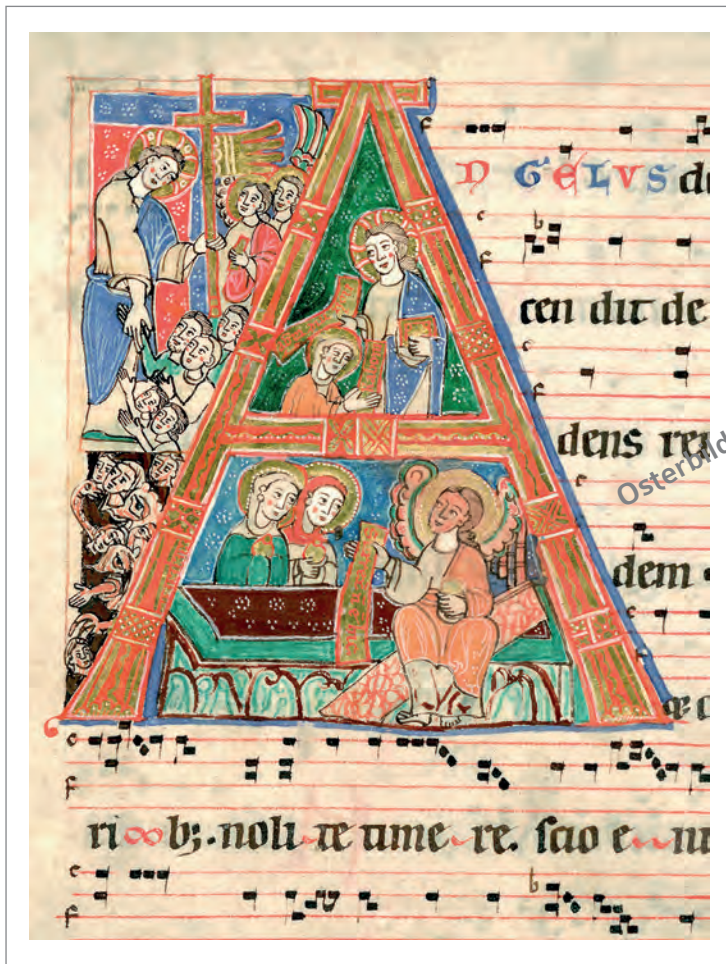 D GELVS de
cen dit de
dens re
Osterbild
dem
ri b; . noli te time re. scio e ni